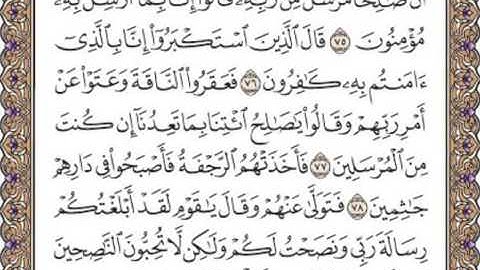 أَنَّ صَٰلِحًا مُّرْسَلٌ مِّن رَّبِّهِۦ قَالُوٓا۟ إِنَّا بِمَآ أُرْسِلَ بِهِۦ
مُؤْمِنُونَ ٧٥ قَالَ ٱلَّذِينَ ٱسْتَكْبَرُوٓا۟ إِنَّا بِٱلَّذِىٓ
ءَامَنتُم بِهِۦ كَٰفِرُونَ ٧٦ فَعَقَرُوا۟ ٱلنَّاقَةَ وَعَتَوْا۟ عَنْ
أَمْرِ رَبِّهِمْ وَقَالُوا۟ يَٰصَٰلِحُ ٱئْتِنَا بِمَا تَعِدُنَآ إِن كُنتَ
مِنَ ٱلْمُرْسَلِينَ ٧٧ فَأَخَذَتْهُمُ ٱلرَّجْفَةُ فَأَصْبَحُوا۟ فِى دَارِهِمْ
جَٰثِمِينَ ٧٨ فَتَوَلَّىٰ عَنْهُمْ وَقَالَ يَٰقَوْمِ لَقَدْ أَبْلَغْتُكُمْ
رِسَالَةَ رَبِّى وَنَصَحْتُ لَكُمْ وَلَٰكِن لَّا تُحِبُّونَ ٱلنَّٰصِحِينَ